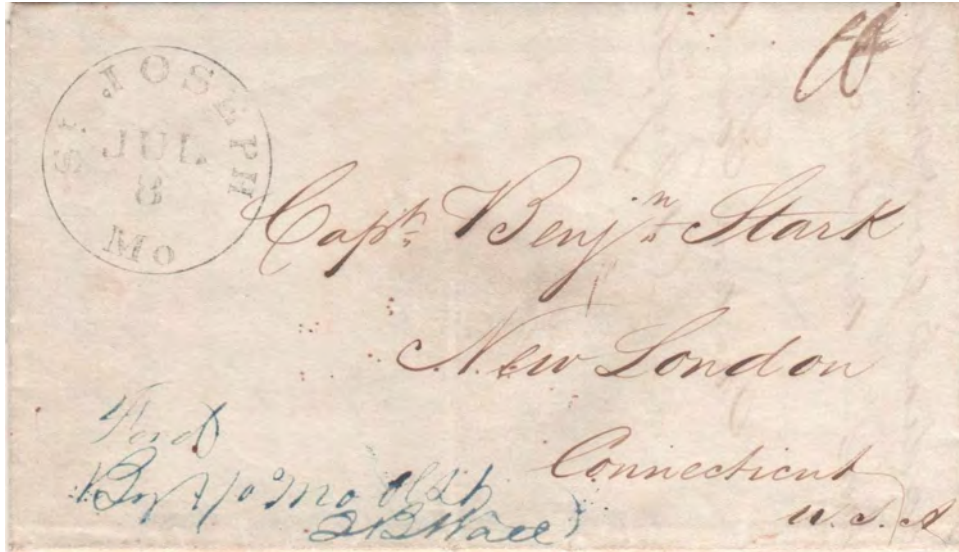 St. JOSEPH
JUL
8
Mo
10
Capt. Benjn. Stark
New London
Connecticut
U. S. A